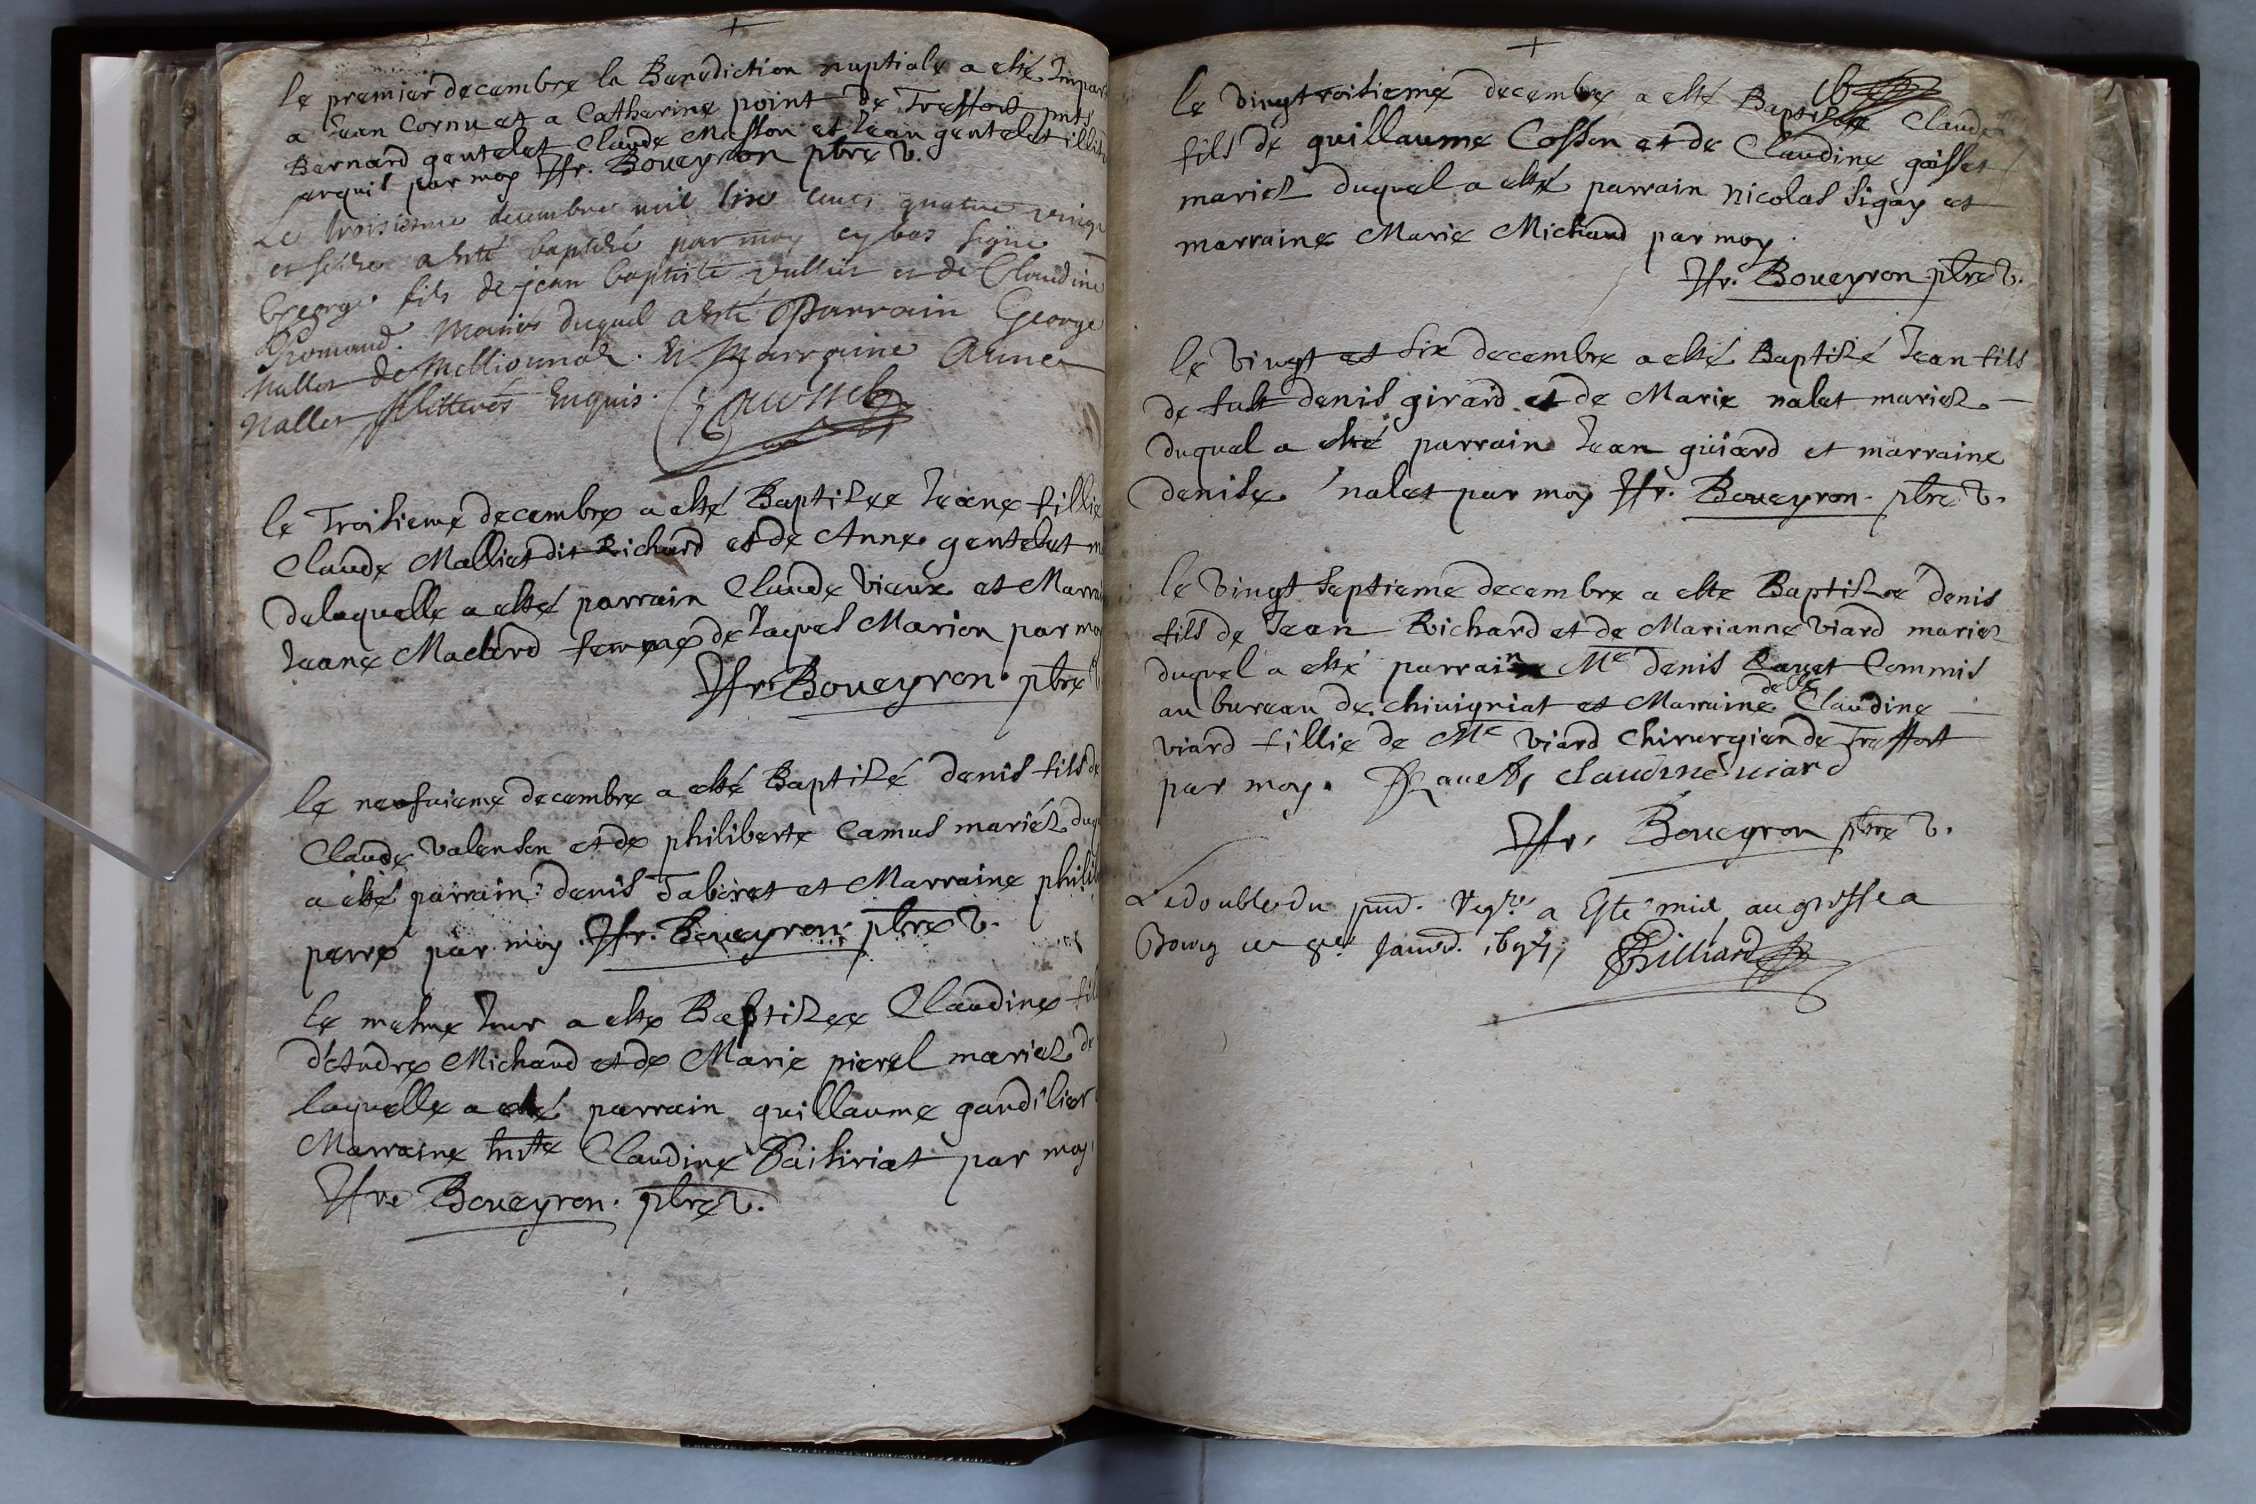 le premier decembre la Benediction nuptiale a esté Impar
a Jean Cornu et a Catherine point de Treffort pnts
Bernard gentelet Claude Masson et Jean gentelet illit
enquis par moy Jfr. Boueyron pbre v.
Le troisieme decembre mil six cents quatre vingt
et seize a esté baptisé par moy cy bas signe
George fils de jean baptiste vullin et de Claudine
Romand. Mariés duquel a esté Parrain George
Nallet de Mellionnas. Et Marraine Anne
Nallet Illitterés Enquis.
le Troisieme decembre a esté Baptisee Jeane fillie
Claude Malliet dit Richard et de Anne gentelet m
delaquelle a esté parrain Claude vieux et Marrai
Jeane femme de Jaques Marion par mo
Jfr. Boueyron pbre
le neufuieme decembre a esté Baptisé denis fils de
Claude valenson et de philiberte Camus mariés duq
a esté parrain denis Taboret et Marraine phili
perre par moy Jfr. Boueyron pbre v.
le mesme Jour a este Baptisee Claudine fil
d'Andre Michaud et de Marie pierel mariez de
laquelle a esté parrain guillaume gaudilier
Marraine Claudine Paisiriat par moy
Jfre Boueyron. pbre v.
le vingtroisieme decembre a esté Baptisé Claude
fils de guillaume Cosson et de Claudine goisset
mariez duquel a esté parrain nicolas sigay et
marraine Marie Michaud par moy.
Jfr. Boueyron pbre v.
le vingt et six decembre a esté Baptisé Jean fils
de fust denis girard et de Marie nalet mariez
duquel a esté parrain Jean guiard et marraine
denise nalet par moy Jfr. Boueyron. pbre v.
le vingt septieme decembre a este Baptisé denis
fils de Jean Richard et de Marianne viard mariez
duquel a esté parrain Me denis Rauet Commis
au bureau de chiuigniat et Marraine delle Claudine
viard fillie de Me viard chirurgien de Treffort
par moy. Rauet, claudine uiard
Jfr. Boueyron pbre v.
Le double du pnt. Regre a Esté mis au greffe a
Bourg ce 8e Januier. 1697, Billiard